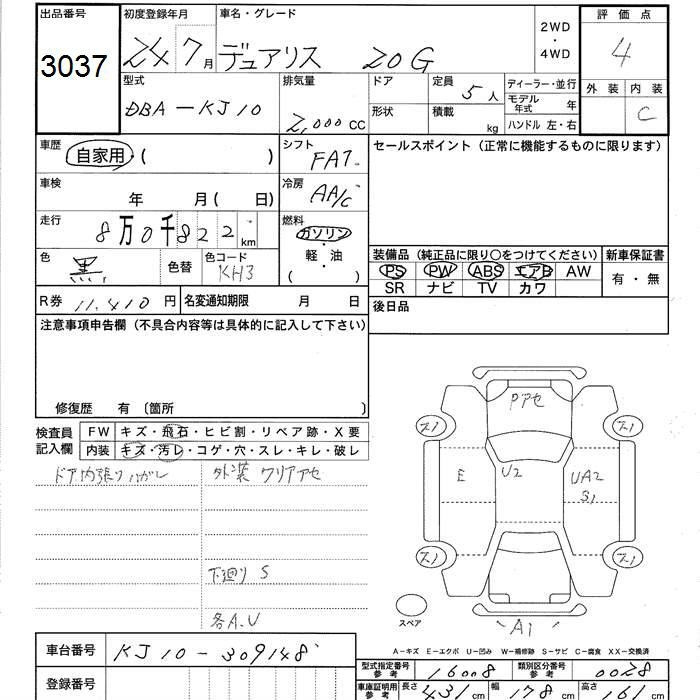 出品番号 初度登録年月 車名・グレード 2WD・4WD 評価点
3037 24 7月 デュアリス 20G 4
型式 排気量 ドア 定員 5人 ディーラー・並行 外装 内装
DBA-KJ10 2,000cc 形状 積載 kg モデル年式 年 C
ハンドル 左・右
車歴 自家用・( ) シフト FAT セールスポイント(正常に機能するものに限ります)
車検 年 月( 日) 冷房 AA/C
走行 8万0千822km 燃料 ガソリン・軽・油 ( )
色 黒 色替 色コード KH3 装備品(純正品に限り○をつけてください) 新車保証書
PS PW ABS エアB AW 有・無
SR ナビ TV カワ
R券 11,410円 名変通知期限 月 日 後日品
注意事項申告欄(不具合内容等は具体的に記入して下さい)
修復歴 有 〔箇所 〕
検査員記入欄 FW キズ・飛石・ヒビ割・リペア跡・X要
内装 キズ・汚レ・コゲ・穴・スレ・キレ・破レ
ドア内張りハガレ 外装 クリアアセ
下廻り S
各A、U
Pアセ
スリ スリ
E U2 UA2
S1
スリ スリ
スペア A1
A-キズ E-エクボ U-凹み W-補修跡 S-サビ C-腐食 XX-交換済
車台番号 KJ10-309148
型式指定番号 参考 16008 類別区分番号 参考 0028
登録番号
車庫証明用 参考 長さ 431cm 幅 178cm 高さ 161cm